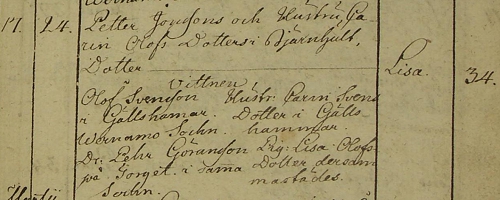 17. 24. Petter Jonsons och Hustru Ca-
rin Olofs Dotters i Bjärnhult,
Dotter Lisa. 34.
Vittnen
Olof Svenson Hustr: Carin Svens
i Gällshamar. Dotter i Gälls-
Wernamo Sochn. hammar.
Dr: Pehr Göranson Pig: Lisa Olofs-
på Torget i sama Dotter dersam
Sochn. mastädes.